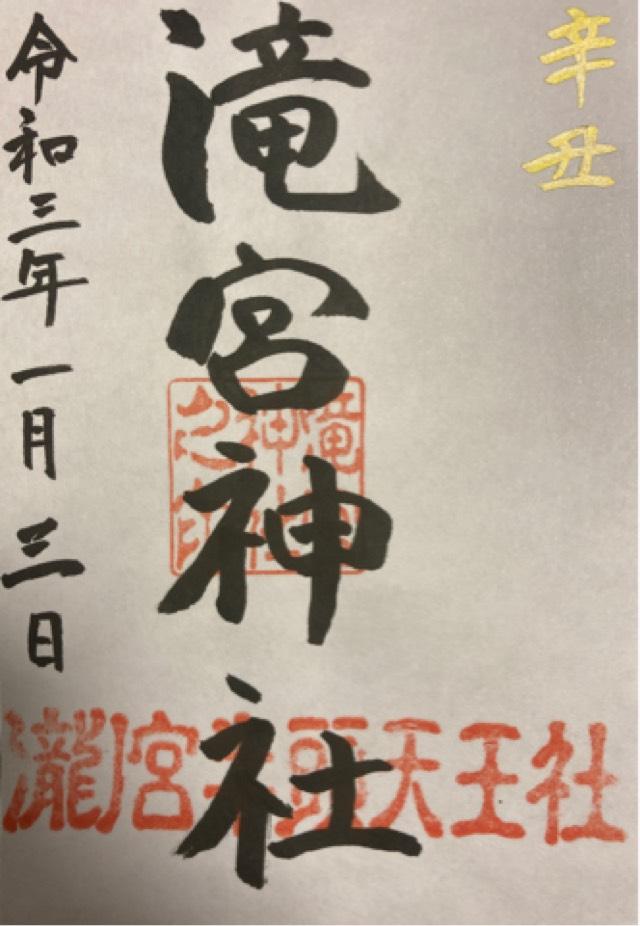 辛丑
滝宮神社
令和三年一月三日
滝宮神社之印
瀧宮牛頭天王社